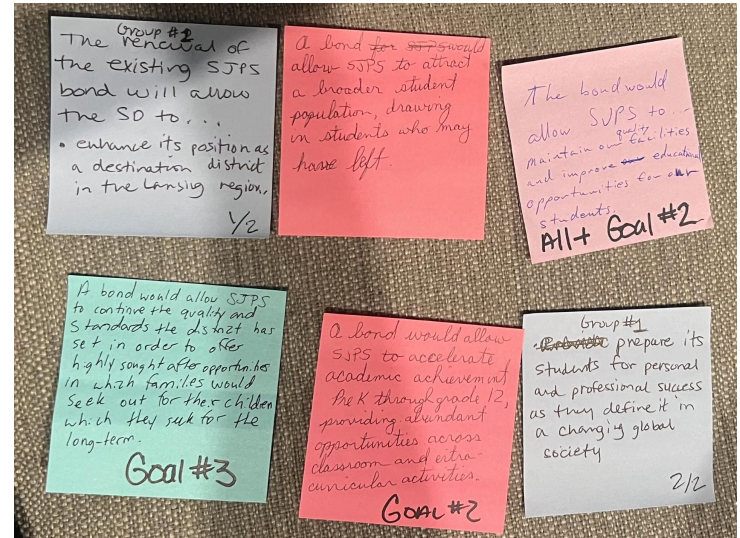 Group #1
The renewal of
the existing SJPS
bond will allow
the SD to...
• enhance its position as
a destination district
in the Lansing region.
1/2
A bond for SJPS would
allow SJPS to attract
a broader student
population, drawing
in students who may
have left.
The bond would
allow SJPS to...
maintain our quality facilities
and improve educational
opportunities for our
students.
All+ Goal #2
A bond would allow SJPS
to continue the quality and
standards the district has
set in order to offer
highly sought after opportunities
in which families would
seek out for their children
which they seek for the
long-term.
Goal #3
A bond would allow
SJPS to accelerate
academic achievement
PreK through grade 12,
providing abundant
opportunities across
classroom and extra-
curricular activities.
GOAL #2
Group #1
prepare its
students for personal
and professional success
as they define it in
a changing global
society
2/2